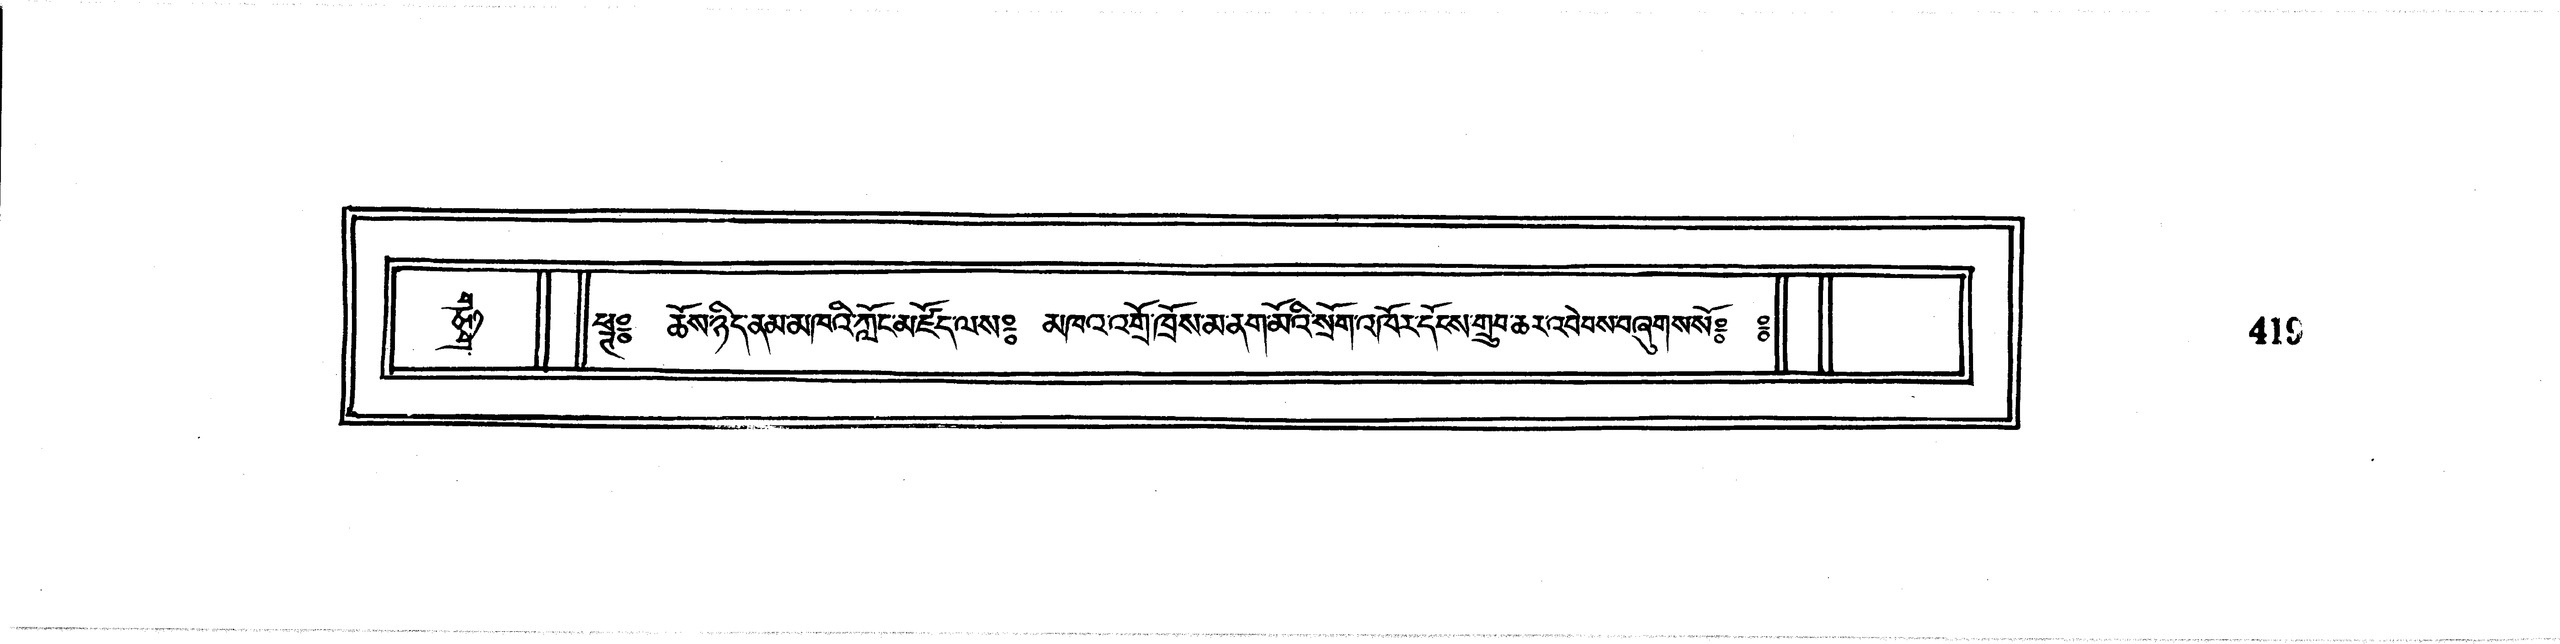 ༄༅༔ ཆོས་ཉིད་ནམ་མཁའི་ཀློང་མཛོད་ལས༔ མཁའ་འགྲོ་ཁྲོས་མ་ནག་མོའི་སྲོག་འཁོར་དངོས་གྲུབ་ཆར་འབེབས་བཞུགས་སོ༔ ༔
419